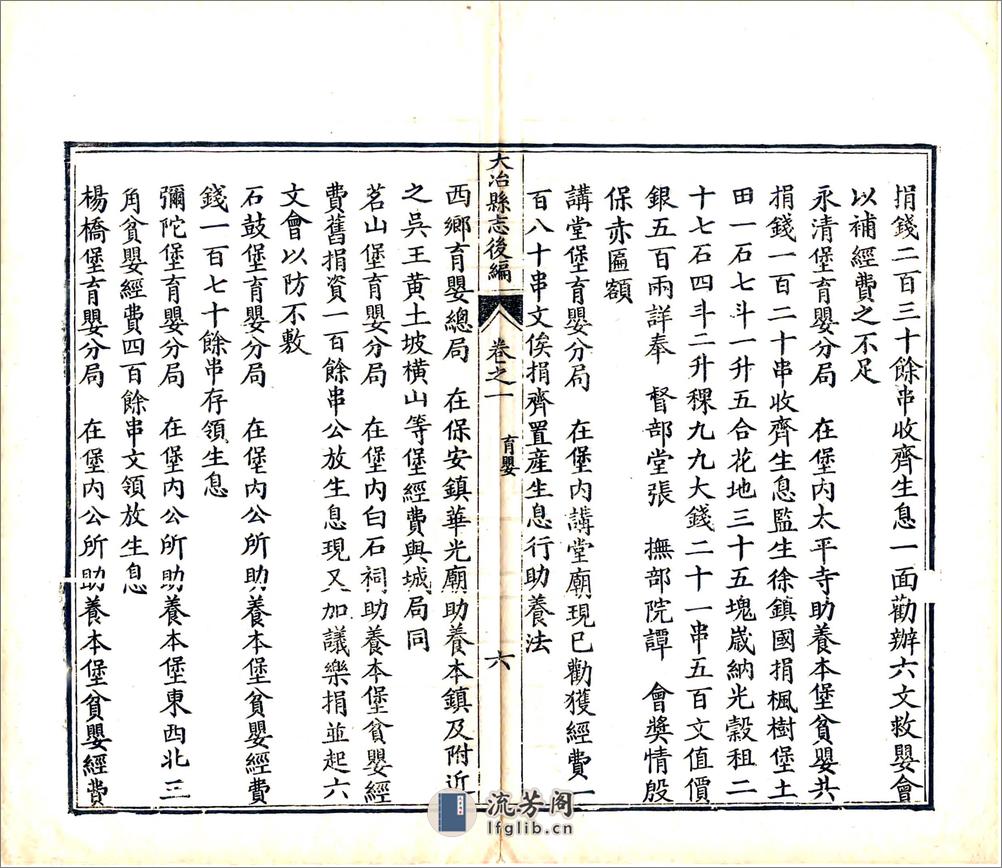 捐錢二百三十餘串收齊生息一面勸辦六文救嬰會
以補經費之不足
永清堡育嬰分局　在堡内太平寺助養本堡貧嬰共
捐錢一百二十串收齊生息監生徐鎮國捐楓樹堡土
田一石七斗一升五合花地三十五塊歲納光穀租二
十七石四斗二升稞九九大錢二十一串五百文值價
銀五百兩詳奉　督部堂張　撫部院譚　會獎情殷
保赤匾額
講堂堡育嬰分局　在堡内講堂廟現已勸獲經費一
百八十串文俟捐齊置産生息行助養法
大冶縣志後編
卷之一
育嬰
六
西鄉育嬰總局　在保安鎮華光廟助養本鎮及附近
之吳王黄土坡橫山等堡經費與城局同
茗山堡育嬰分局　在堡内白石祠助養本堡貧嬰經
費舊捐資一百餘串公放生息現又加議樂捐並起六
文會以防不敷
石鼓堡育嬰分局　在堡内公所助養本堡貧嬰經費
錢一百七十餘串存領生息
彌陀堡育嬰分局　在堡内公所助養本堡東西北三
角貧嬰經費四百餘串文領放生息
楊橋堡育嬰分局　在堡内公所助養本堡貧嬰經費
流芳阁
lfglib.cn